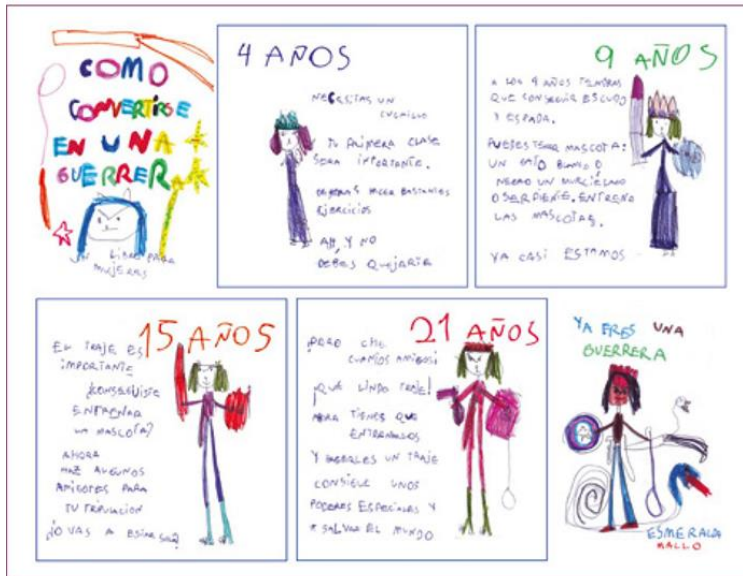 COMO
CONVERTIRSE
EN UNA
GUERRERA
UN LIBRO PARA
MUJERES
4 AÑOS
NECESITAS UN
CUCHILLO
TU PRIMERA CLASE
SERA IMPORTANTE.
DEBERAS HACER BASTANTES
EJERCICIOS
AH, Y NO
DEBES QUEJARTE
9 AÑOS
A LOS 9 AÑOS TENDRAS
QUE CONSEGUIR ESCUDO
Y ESPADA.
PUEDES TENER MASCOTA:
UN GATO BLANCO O
NEGRO UN MURCIÉLAGO
O SERPIENTE. ENTRENA
LAS MASCOTAS.
YA CASI ESTAMOS
15 AÑOS
EL TRAJE ES
IMPORTANTE
¿CONSEGUISTE
ENTRENAR
LA MASCOTA?
AHORA
HAZ ALGUNOS
AMIGOTES PARA
TU TRIPULACION
¿O VAS A ESTAR SOLA?
21 AÑOS
¡PERO CHE
CUANTOS AMIGOS!
¡QUÉ LINDO TRAJE!
AHORA TIENES QUE
ENTRENARLOS
Y HACERLES UN TRAJE
CONSIGUE UNOS
PODERES ESPECIALES Y
A SALVAR EL MUNDO
YA ERES UNA
GUERRERA
ESMERALDA
MALLO